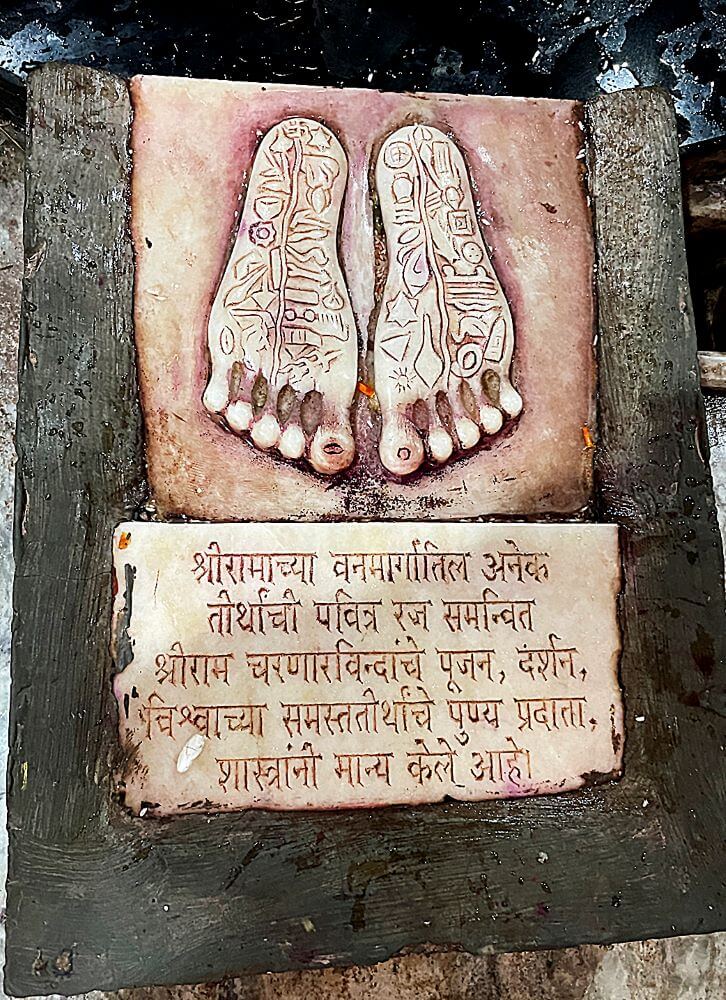 श्रीरामाच्या वनमार्गातिल अनेक
तीर्थांची पवित्र रज समन्वित
श्रीराम चरणारविन्दांचे पूजन, दंर्शन,
विश्वाच्या समस्ततीर्थांचे पुण्य प्रदाता,
शास्त्रांनी मान्य केले आहे।